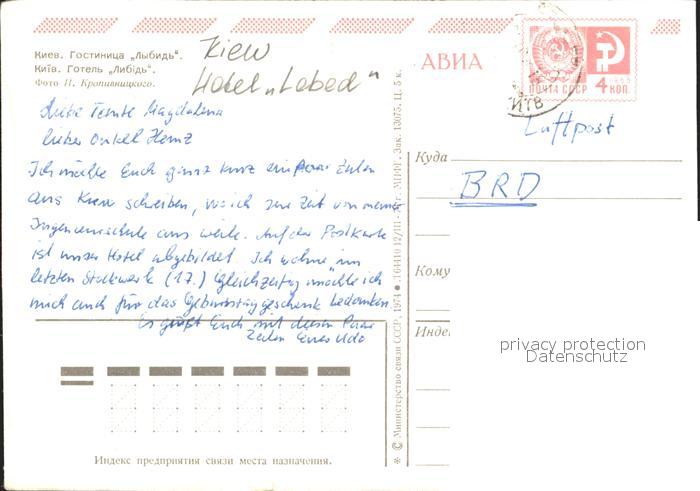 Киев. Гостиница „Лыбидь“.
Київ. Готель „Либідь“.
Фото П. Кропивницкого.
Kiew
Hotel „Lebed“
АВИА
ПОЧТА СССР 4 КОП.
Luftpost
Куда
BRD
Кому
Liebe Tante Magdalena
lieber Onkel Heinz
Ich möchte Euch ganz kurz ein paar Zeilen
aus Kiew schreiben, wo ich zur Zeit von meiner
Ingenieurschule aus weile. Auf der Postkarte
ist unser Hotel abgebildet. Ich wohne im
letzten Stockwerk (17.) Gleichzeitig möchte ich
mich auch für das Geburtstagsgeschenk bedanken
Es grüßt Euch mit diesen Paar
Zeilen Euer Udo
Инде
privacy protection
Datenschutz
Индекс предприятия связи места назначения.
* © Министерство связи СССР, 1974 МПФГ. Зак. 13075. Ц. 5 к.